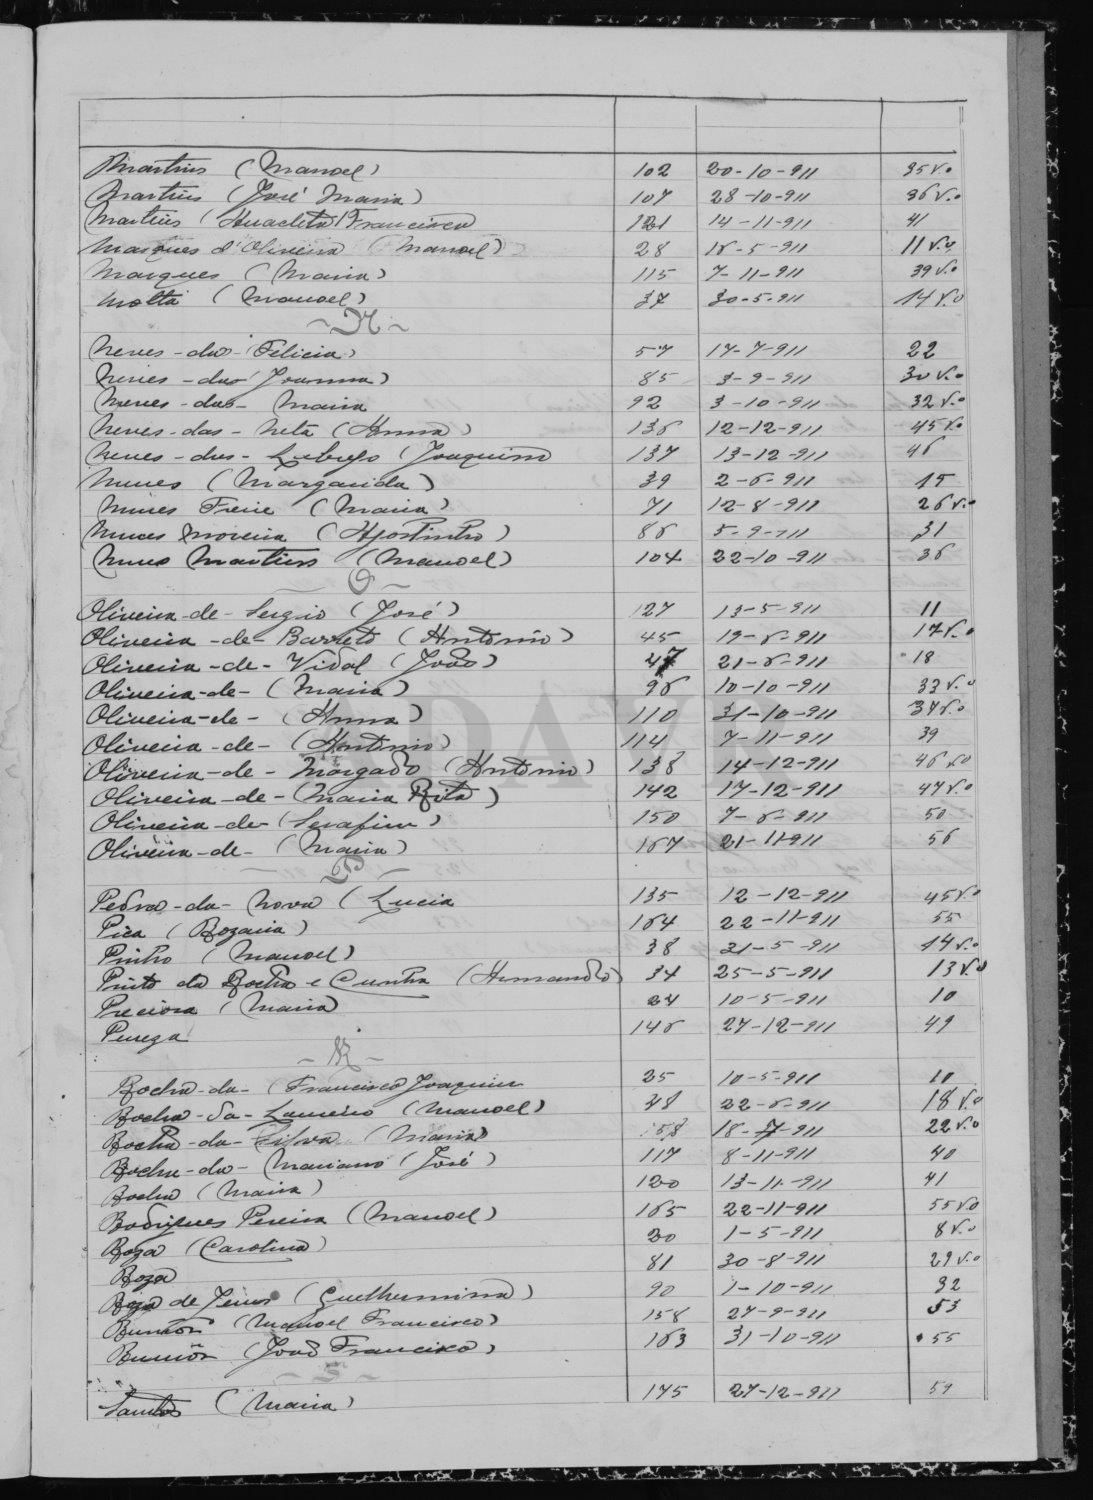 Martins (Manoel) 102 20-10-911 35 v.o
Martins (José Maria) 107 28-10-911 36 v.o
Martins (Francisca 121 14-11-911 41
Marques d'Oliveira (Manoel) 28 16-5-911 11 v.o
Marques (Maria) 115 7-11-911 39 v.o
Motta (Manoel) 37 30-5-911 14 v.o
-N-
Neves-das-(Felicia) 57 17-7-911 22
Neves-das (Joanna) 85 3-9-911 30 v.o
Neves-das- Maria 92 3-10-911 32 v.o
Neves-das-Neta (Anna) 136 12-12-911 45 v.o
Neves-das- (Joaquim 137 13-12-911 46
Nunes (Margarida) 39 2-6-911 15
Nunes Freire (Maria) 71 12-8-911 26 v.o
Nunes Moreira (Agostinho) 86 5-9-911 31
Nunes Martins (Manoel) 104 22-10-911 36
-O-
Oliveira-de-Sergio (José) 127 13-5-911 11
Oliveira-de-Barreto (Antonio) 45 19-6-911 17 v.o
Oliveira-de-Vidal (João) 47 21-6-911 18
Oliveira-de-(Maria) 96 10-10-911 33 v.o
Oliveira-de-(Anna) 110 31-10-911 37 v.o
Oliveira-de-(Antonio) 114 7-11-911 39
Oliveira-de-Morgado (Antonio) 138 14-12-911 46 v.o
Oliveira-de-(Maria Rita) 142 17-12-911 47 v.o
Oliveira-de-(Serafim) 150 7-6-911 50
Oliveira-de-(Maria) 167 21-11-911 56
-P-
Pedra-da-Nova (Lucia 135 12-12-911 45 v.o
Pica (Rozaria) 164 22-11-911 55
Pinho (Manoel) 38 31-5-911 14 v.o
Pinto da Rocha e Cunha (Armando) 34 25-5-911 13 v.o
Preciosa (Maria) 24 10-5-911 10
146 27-12-911 49
-R-
Rocha-da-(Francisco Joaquim 25 10-5-911 10
Rocha-da-Lameiro (Manoel) 48 22-6-911 18 v.o
Rocha-da-Silva (Maria) 58 18-7-911 22 v.o
Rocha-da-Mariano (José) 117 8-11-911 40
Rocha (Maria) 120 13-11-911 41
Rodrigues Pereira (Manoel) 165 22-11-911 55 v.o
Roza (Carolina) 20 1-5-911 8 v.o
Roza 81 30-8-911 29 v.o
Roza de Jesus (Guilhermina) 90 1-10-911 32
(Manoel Francisco) 158 27-9-911 53
(João Francisco) 163 31-10-911 55
-S-
Santos (Maria) 175 27-12-911 59
ADAVR